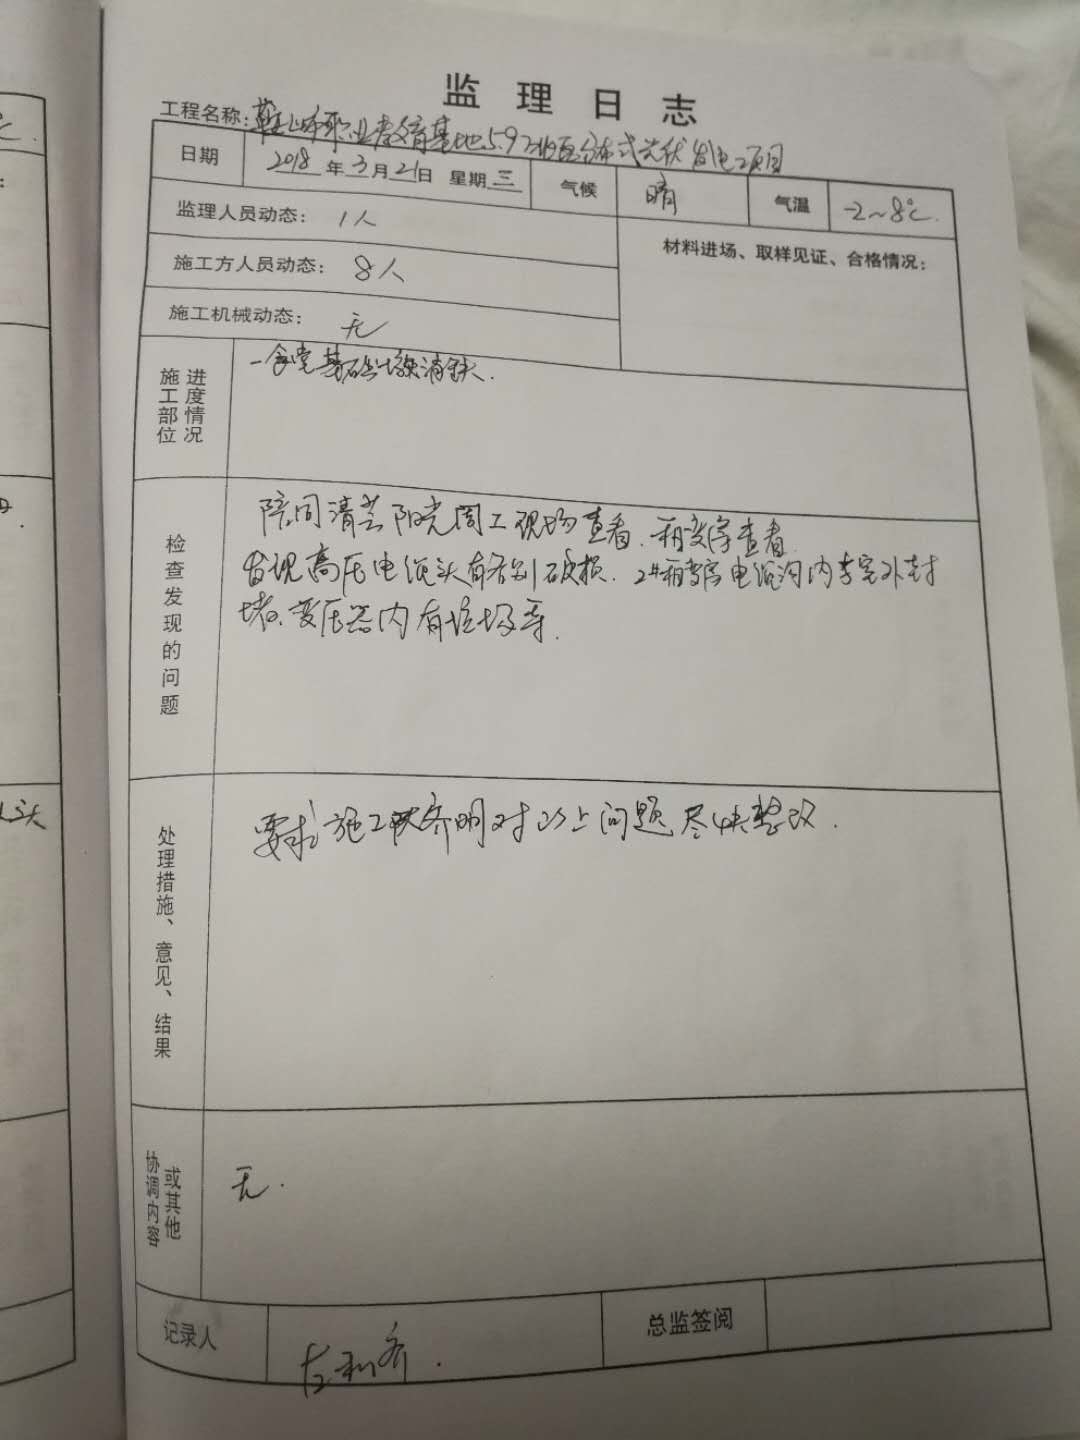 监理日志
工程名称:鞍山市职业教育基地5.9兆瓦分布式光伏发电项目
日期 2018年3月21日 星期三 气候 晴 气温 -2~8℃.
监理人员动态: 1人
材料进场、取样见证、合格情况:
施工方人员动态: 8人
施工机械动态: 无
施工部位 进度情况
一食堂基础 消缺.
检查发现的问题
陪同清芸阳光周工现场查看.箱变房查看
发现高压电缆头有各别破损.2#箱变房电缆沟内孝完外封
堵.变压器内有垃圾等.
处理措施、意见、结果
要求施工 齐明对以上问题尽快整改.
协调内容 或其他
无.
记录人
总监签阅
℃.
: